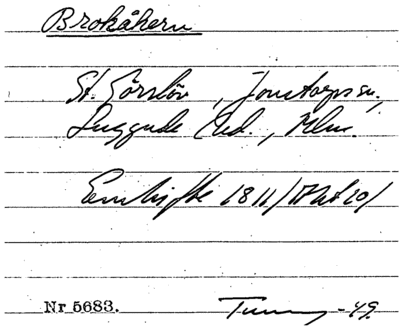 Brokåkern
St. Görslöv, Jonstorps sn,
Luggude hd., Mlm.
Enskifte 1811/Akt 20/
Nr 5683.
-49.